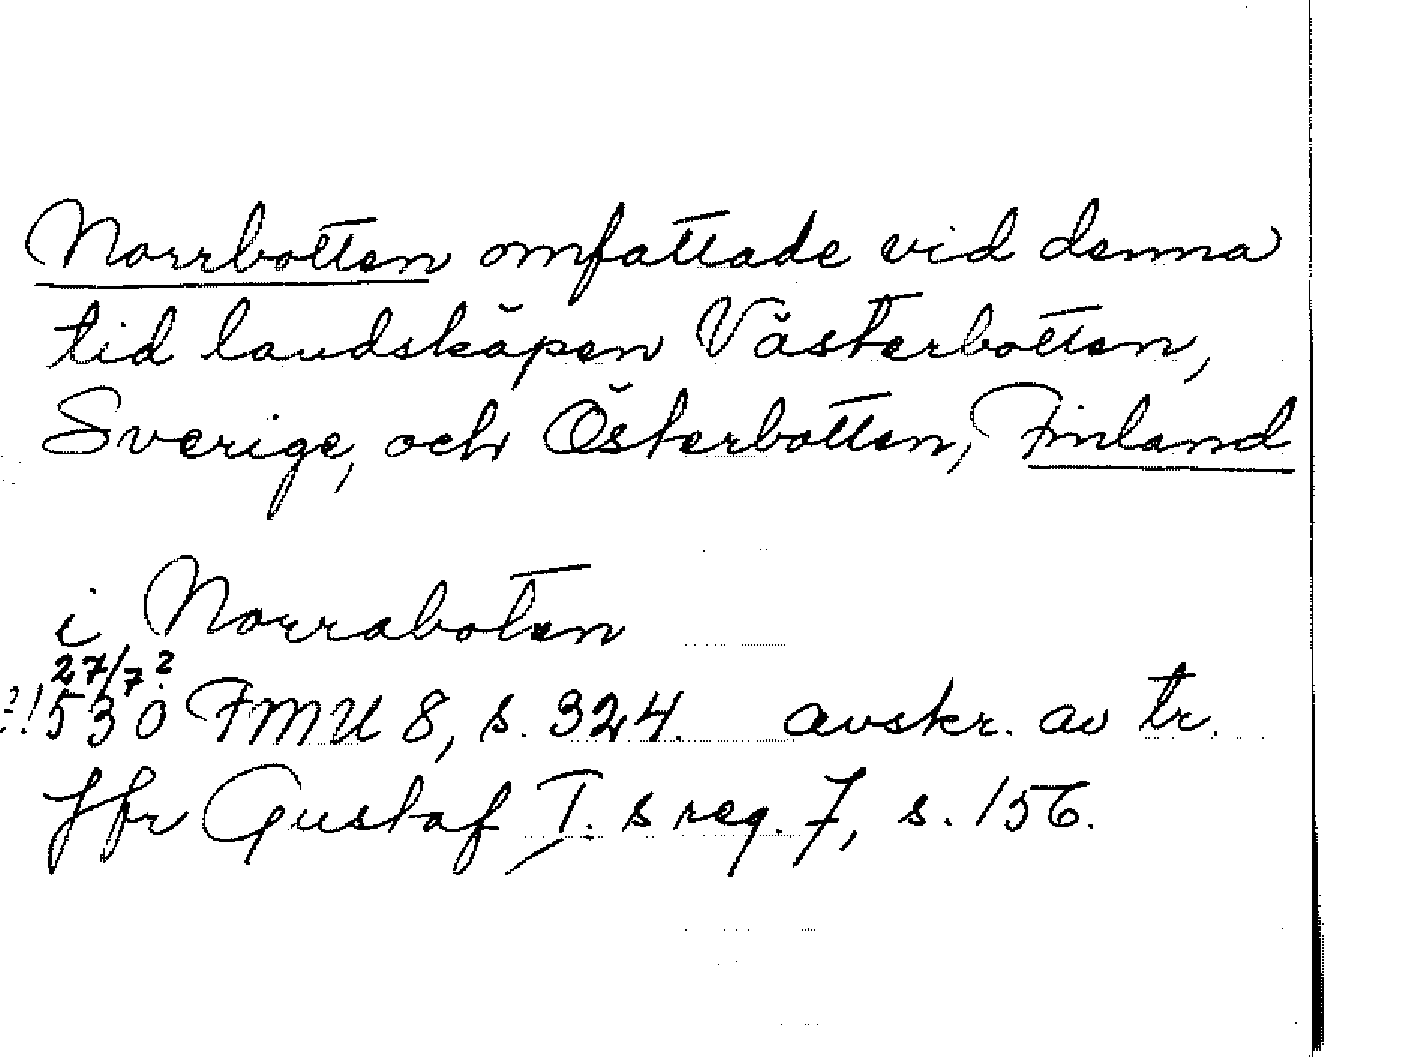 Norrbotten omfattade vid denna
tid landskapen Västerbotten,
Sverige, och Österbotten, Finland
i Norraboten
27/7 ?
1530 FMU 8, s. 324. avskr. av tr.
Jfr Gustaf I. s reg. 7, s. 156.